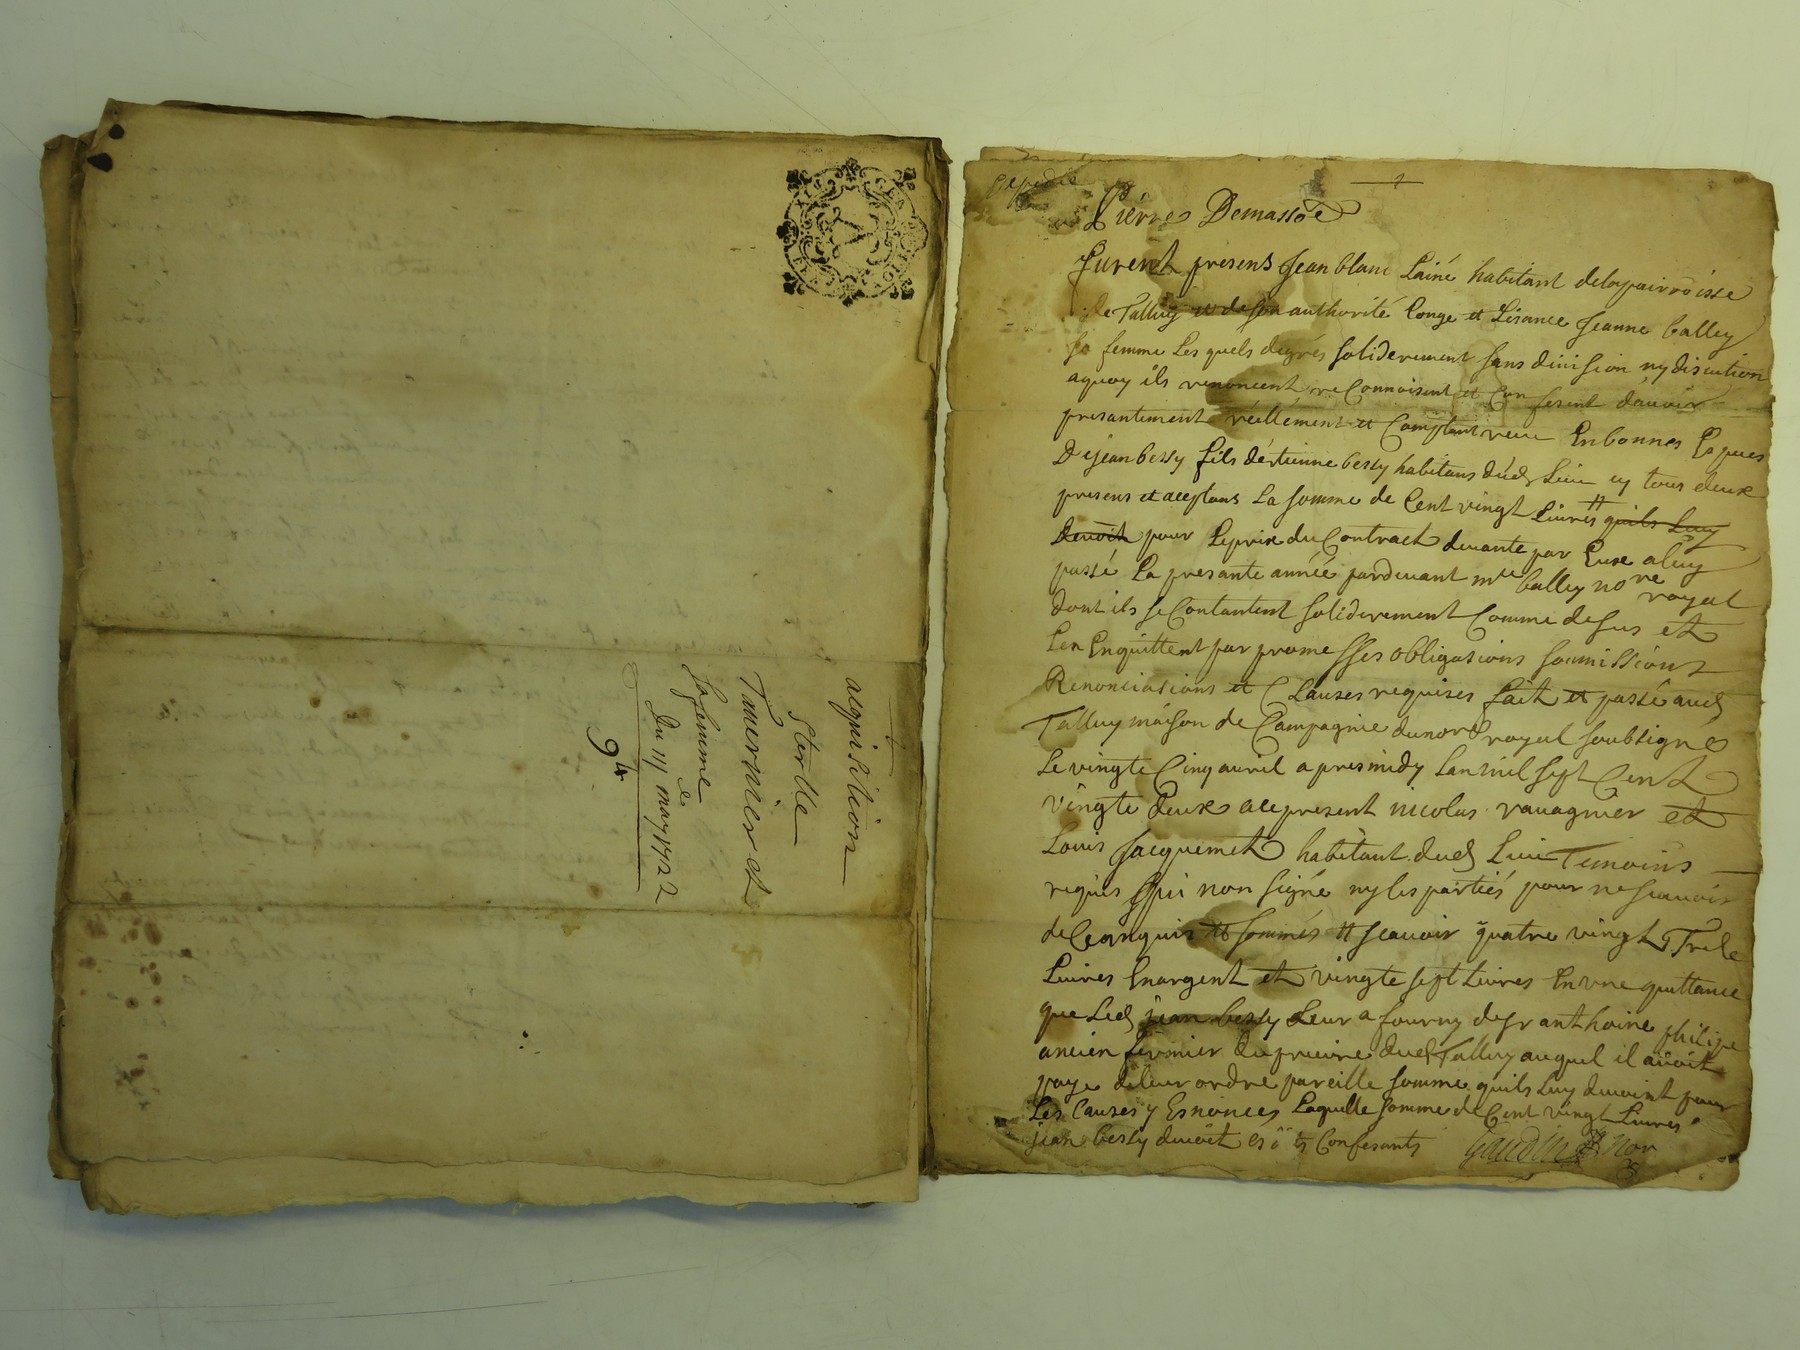 acquisition
Sterlle
Tavernier et
Sa femme
Du 111 may 1722
9 4
expedié
Pierres Demassoe
furent presens Jean blanc Lainé habitant delapairroisse
de Talluy et deson authorité Conge et Lisance Jeanne balley
sa femme Les quels degrés soliderement sans division ny discution
aquoy ils renoncent reConnoisent et Confesent dauoir
presantement réellement et Comptant receu Enbonnes Espuces
De jean bessy fils détienne bessy habitans dud Lieu cy tous deux
presens et aceptans La somme de Cent vingt Liures quils Luy
Devoit pour Leprix du Contract duante par Eux aluy
passé La presante année pardeuant mtre balley nore royal
dont ils se Contantent soliderement Comme desus et
Len Enquittent par promesses obligasions soumissions
Renonciasions et Clauses requises fait et passé aud
Talluy maison de Campagnie dunore royal soubsigné
Le vingte Cinq auril apres midy Lan mil sept Cent
vingte deux ace present nicolas rauagnier et
Louis Jacquemet habitant dud Lieu Temoins
requis qui non signé ny les partiés pour ne scauoir
de Ceanquis et sommés # scauoir quatre vingt Treise
Liures Enargent et vingte sept Liures En vne quittance
que Led jean bessy Leur a fourny de sr anthoine philipe
ancien fermier du prieure dud Talluy auquel il auoit
paye de leur ordre pareille somme quils Luy deuoint pour
Les Causes y Esnonces Laquelle somme de Cent vingt Liures
jean bessy deuoit Confesants Gaudin nore